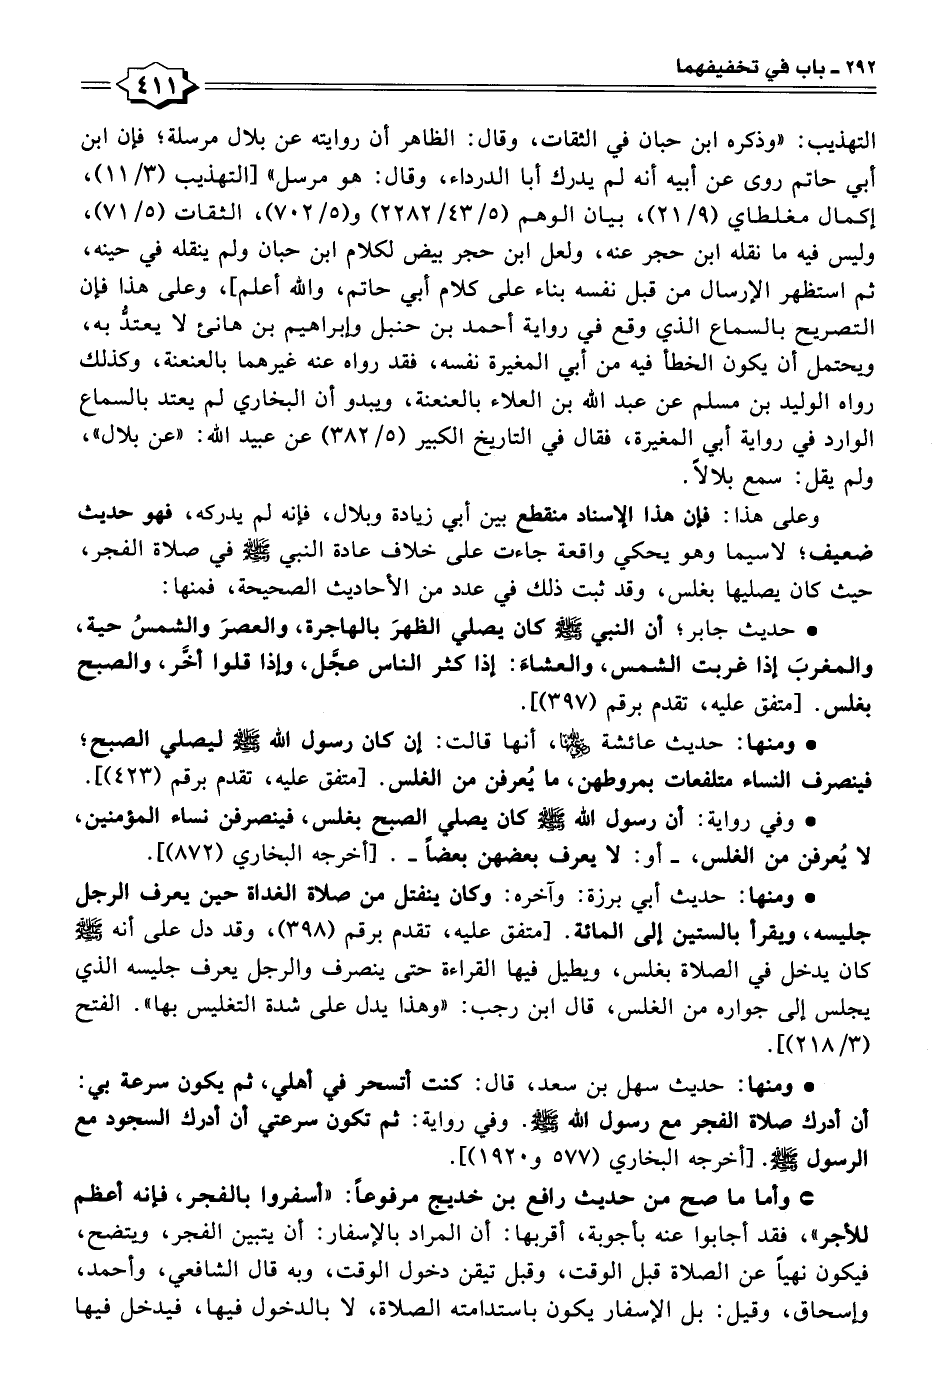 ٢٩٢ ـ باب في تخفيفهما
٤١١
التهذيب: «وذكره ابن حبان في الثقات، وقال: الظاهر أن روايته عن بلال مرسلة؛ فإن ابن
أبي حاتم روى عن أبيه أنه لم يدرك أبا الدرداء، وقال: هو مرسل» [التهذيب (٣/ ١١)،
إكمال مغلطاي (٩/ ٢١)، بيان الوهم (٥/ ٤٣/ ٢٢٨٢) و(٥/ ٧٠٢)، الثقات (٥/ ٧١)،
وليس فيه ما نقله ابن حجر عنه، ولعل ابن حجر بيض لكلام ابن حبان ولم ينقله في حينه،
ثم استظهر الإرسال من قبل نفسه بناء على كلام أبي حاتم، والله أعلم]، وعلى هذا فإن
التصريح بالسماع الذي وقع في رواية أحمد بن حنبل وإبراهيم بن هانئ لا يعتدُّ به،
ويحتمل أن يكون الخطأ فيه من أبي المغيرة نفسه، فقد رواه عنه غيرهما بالعنعنة، وكذلك
رواه الوليد بن مسلم عن عبد الله بن العلاء بالعنعنة، ويبدو أن البخاري لم يعتد بالسماع
الوارد في رواية أبي المغيرة، فقال في التاريخ الكبير (٥/ ٣٨٢) عن عبيد الله: «عن بلال»،
ولم يقل: سمع بلالاً.
وعلى هذا: فإن هذا الإسناد منقطع بين أبي زيادة وبلال، فإنه لم يدركه، فهو حديث
ضعيف؛ لاسيما وهو يحكي واقعة جاءت على خلاف عادة النبي ﷺ في صلاة الفجر،
حيث كان يصليها بغلس، وقد ثبت ذلك في عدد من الأحاديث الصحيحة، فمنها:
• حديث جابر؛ أن النبي ﷺ كان يصلي الظهرَ بالهاجرة، والعصرَ والشمسُ حية،
والمغربَ إذا غربت الشمس، والعشاءَ: إذا كثر الناس عجَّل، وإذا قلوا أخَّر، والصبح
بغلس. [متفق عليه، تقدم برقم (٣٩٧)].
• ومنها: حديث عائشة رضي الله عنها، أنها قالت: إن كان رسول الله ﷺ ليصلي الصبح؛
فينصرف النساء متلفعات بمروطهن، ما يُعرفن من الغلس. [متفق عليه، تقدم برقم (٤٢٣)].
• وفي رواية: أن رسول الله ﷺ كان يصلي الصبح بغلس، فينصرفن نساء المؤمنين،
لا يُعرفن من الغلس، ـ أو: لا يعرف بعضهن بعضاً ـ . [أخرجه البخاري (٨٧٢)].
• ومنها: حديث أبي برزة: وآخره: وكان ينفتل من صلاة الغداة حين يعرف الرجل
جليسه، ويقرأ بالستين إلى المائة. [متفق عليه، تقدم برقم (٣٩٨)، وقد دل على أنه ﷺ
كان يدخل في الصلاة بغلس، ويطيل فيها القراءة حتى ينصرف والرجل يعرف جليسه الذي
يجلس إلى جواره من الغلس، قال ابن رجب: «وهذا يدل على شدة التغليس بها». الفتح
(٣/ ٢١٨)].
• ومنها: حديث سهل بن سعد، قال: كنت أتسحر في أهلي، ثم يكون سرعة بي:
أن أدرك صلاة الفجر مع رسول الله ﷺ. وفي رواية: ثم تكون سرعتي أن أدرك السجود مع
الرسول ﷺ. [أخرجه البخاري (٥٧٧ و١٩٢٠)].
وأما ما صح من حديث رافع بن خديج مرفوعاً: «أسفروا بالفجر، فإنه أعظم
للأجر»، فقد أجابوا عنه بأجوبة، أقربها: أن المراد بالإسفار: أن يتبين الفجر، ويتضح،
فيكون نهياً عن الصلاة قبل الوقت، وقبل تيقن دخول الوقت، وبه قال الشافعي، وأحمد،
وإسحاق، وقيل: بل الإسفار يكون باستدامته الصلاة، لا بالدخول فيها، فيدخل فيها